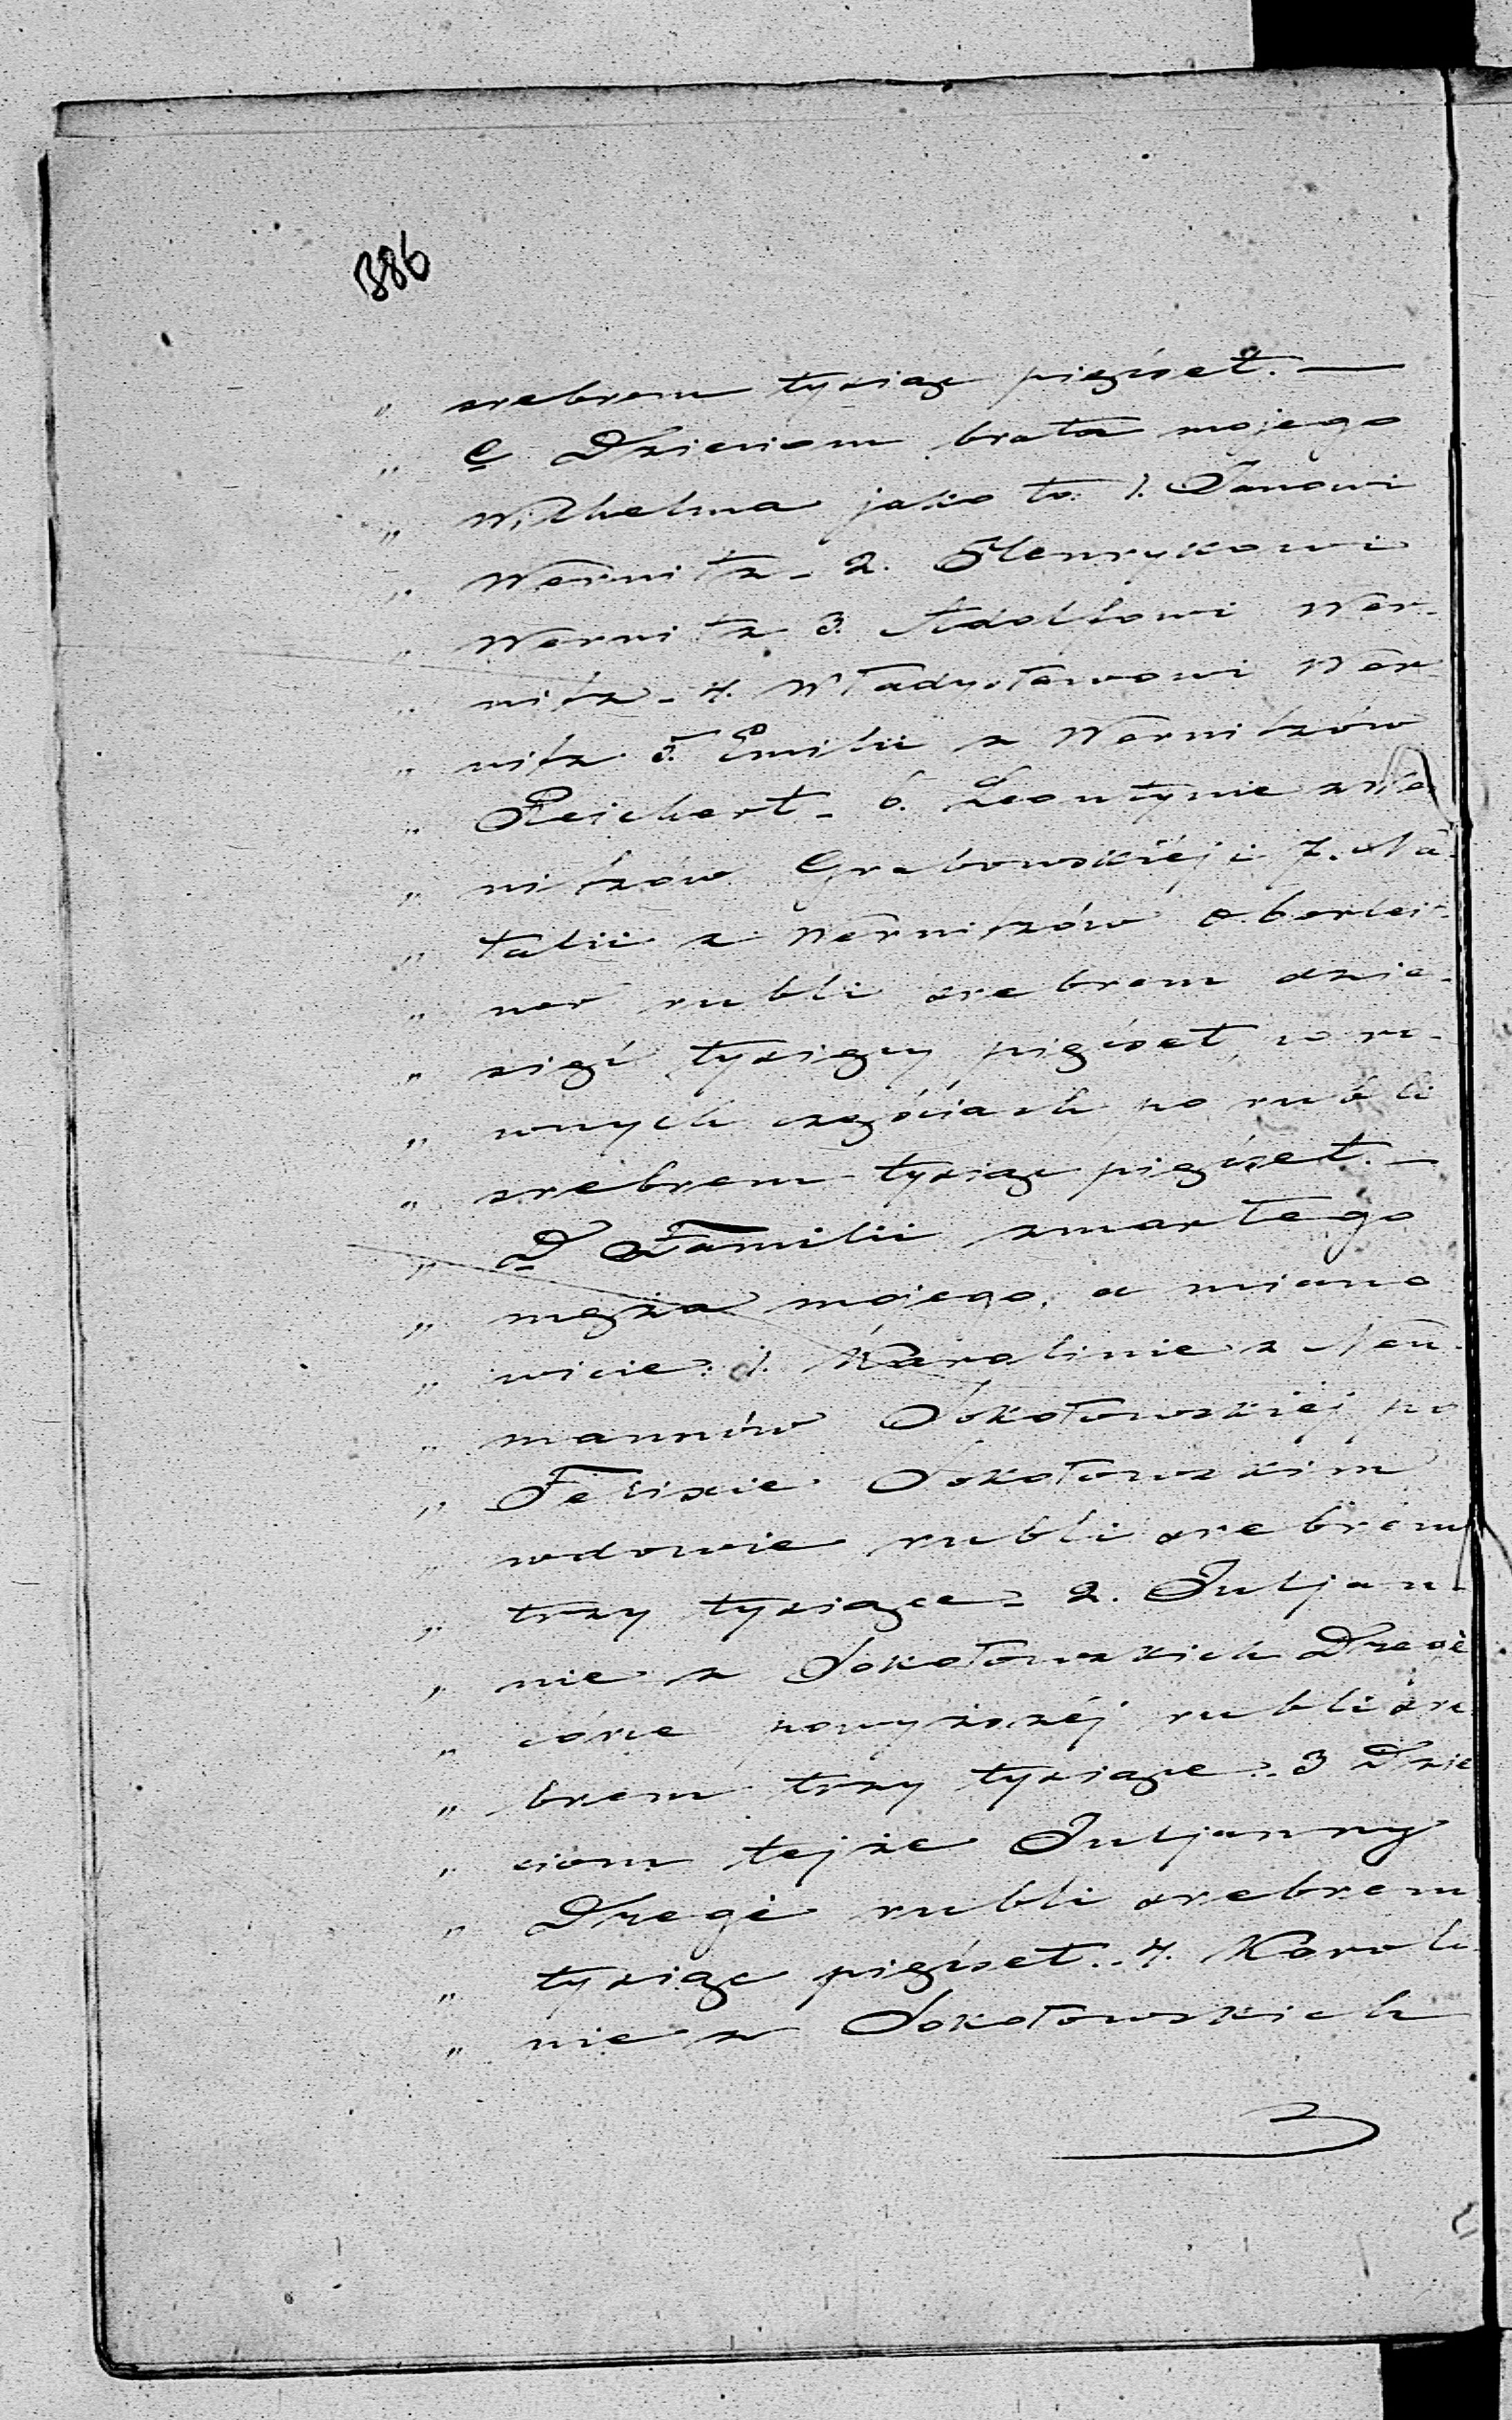 1386
„ srebrem tysiąc pięćset. —
„ C Dzieciom brata mojego
„ Wilhelma jako to: 1. Janowi
„ Wernitz - 2. Henrykowi
„ Wernitz 3. Adolfowi Wer-
„ nitz - 4. Władysławowi Wer-
„ nitz 5. Emilii z Wernitzów
„ Reichert - 6. Leontynie z Wer-
„ nitzów Grabowskiéj i 7. Na-
„ talii z Wernitzów Oberlei-
„ ner rubli srebrem dzie-
„ sięć tysięcy pięćset, w ró-
„ wnych częściach po rubli
„ srebrem tysiąc pięćset. —
„ D Familii zmarłego
„ męża mojego, a miano
„ wicie: 1. Karolinie z Neu-
„ mannów Sokołowskiéj po
„ Felixie Sokołowskim
„ wdowie rubli srebrem
„ trzy tysiące - 2. Juljan-
„ nie z Sokołowskich Drege
„ córce powyższéj rubli sre
„ brem trzy tysiące - 3 Dzie
„ ciom tejże Juljanny
„ Drege rubli srebrem
„ tysiąc pięćset. - 4. Karoli-
„ nie z Sokołowskich